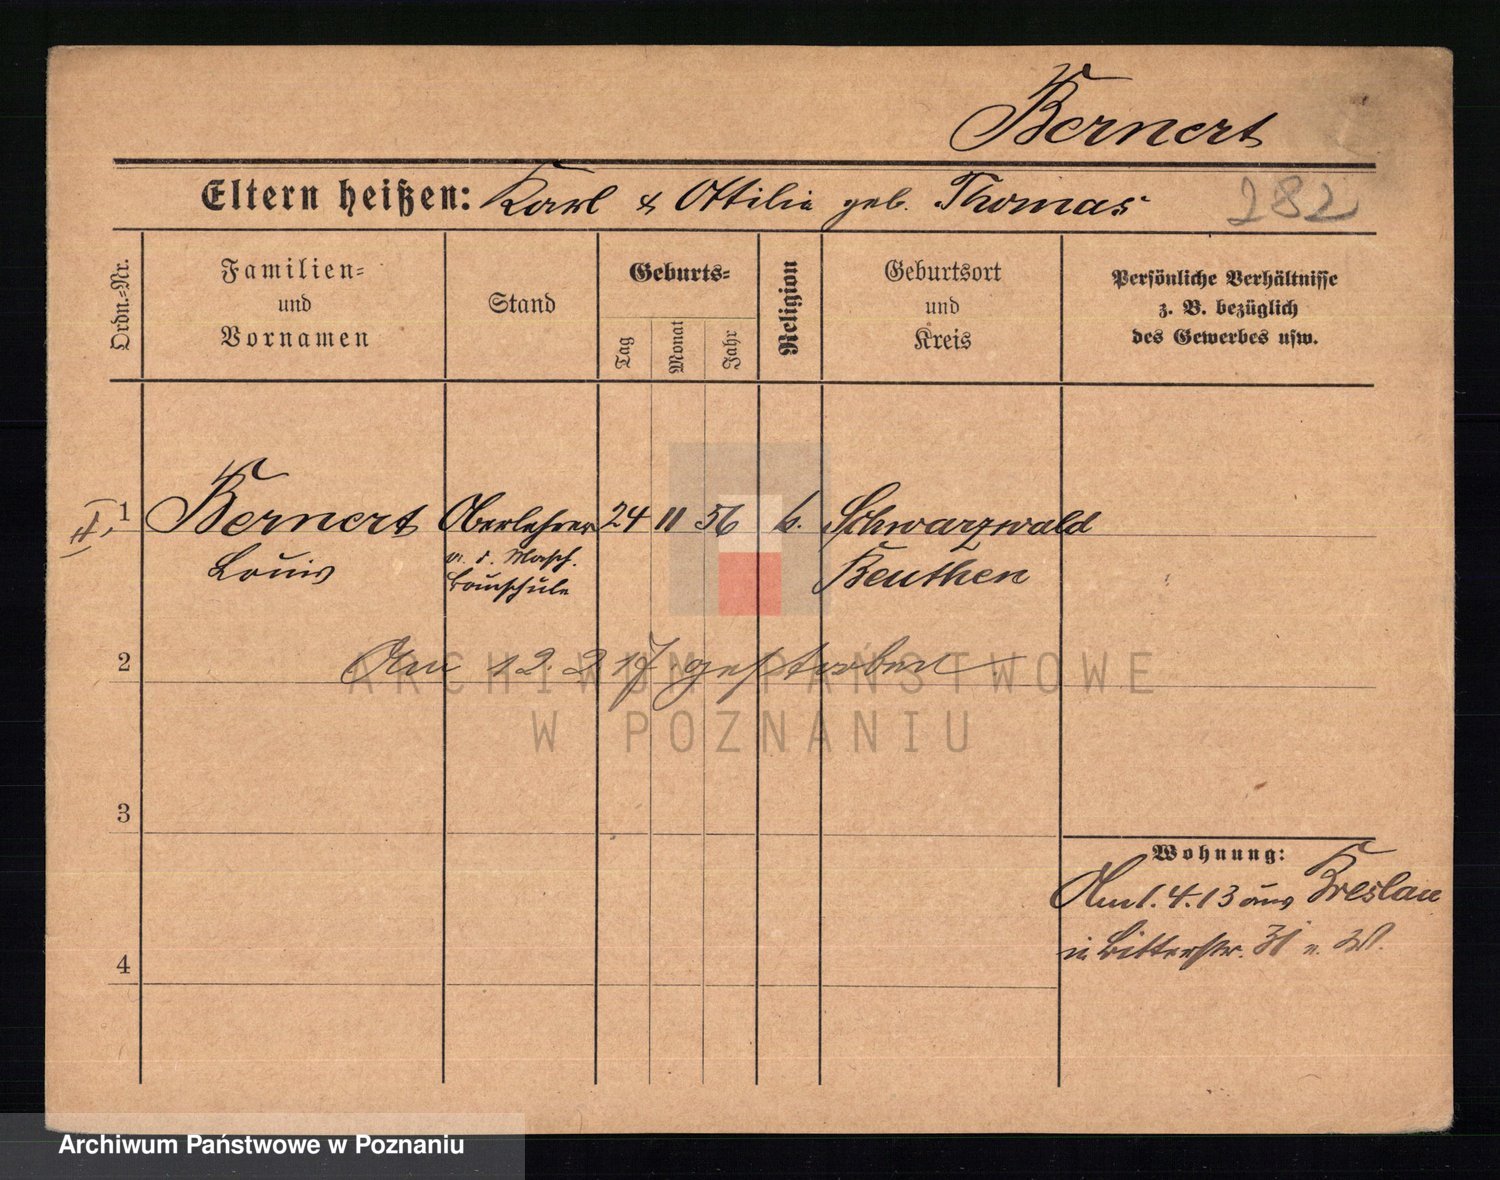 Bernert
Eltern heißen: Karl & Ottilie geb. Thomas 282
Ordn.-Nr.
Familien- und Vornamen
Stand
Geburts-
Tag
Monat
Jahr
Religion
Geburtsort und Kreis
Persönliche Verhältnisse z. B. bezüglich des Gewerbes usw.
1 Bernert Oberlehrer 24 11 56 k. Schwarzwald
Louis
a. d. Masch.
bauschule
Beuthen
2 Am 12. 2 17 gestorben
3
Wohnung:
Am 1. 4. 13 aus Breslau
in Bitterstr. 31 W.
4
ARCHIWUM PAŃSTWOWE
W POZNANIU
Archiwum Państwowe w Poznaniu